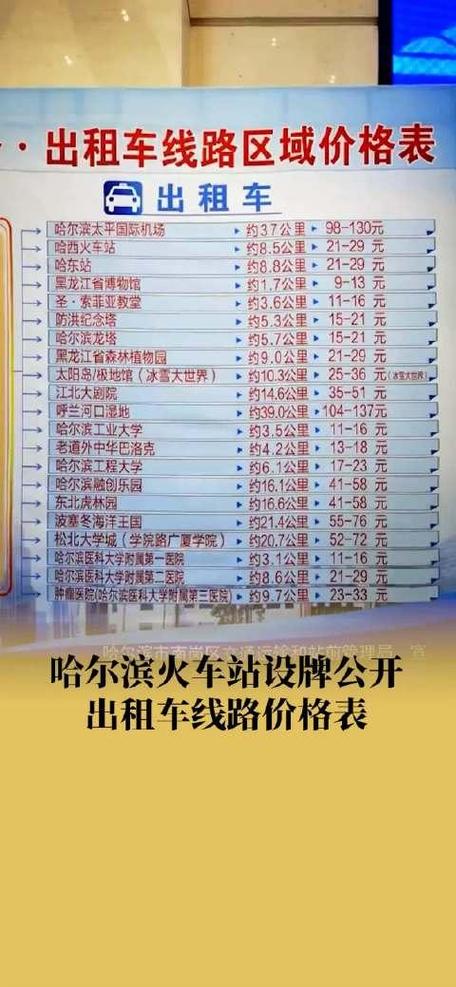 ·出租车线路区域价格表
出租车
哈尔滨太平国际机场 约37公里 98-130元
哈西火车站 约8.5公里 21-29 元
哈东站 约8.8公里 21-29 元
黑龙江省博物馆 约1.7公里 9-13 元
圣·索菲亚教堂 约3.6公里 11-16 元
防洪纪念塔 约5.3公里 15-21 元
哈尔滨龙塔 约5.7公里 15-21 元
黑龙江省森林植物园 约9.0公里 21-29 元
太阳岛/极地馆（冰雪大世界） 约10.3公里 25-36 元(冰雪大世界)
江北大剧院 约14.6公里 35-51 元
呼兰河口湿地 约39.0公里 104-137元
哈尔滨工业大学 约3.5公里 11-16 元
老道外中华巴洛克 约4.2公里 13-18 元
哈尔滨工程大学 约6.1公里 17-23 元
哈尔滨融创乐园 约16.1公里 41-58 元
东北虎林园 约16.6公里 41-58 元
波塞冬海洋王国 约21.4公里 55-76 元
松北大学城（学院路广厦学院） 约20.7公里 52-72 元
哈尔滨医科大学附属第一医院 约3.1公里 11-16 元
哈尔滨医科大学附属第二医院 约8.6公里 21-29 元
肿瘤医院(哈尔滨医科大学附属第三医院) 约9.7公里 23-33 元
哈尔滨市南岗区交通运输和站前管理局 宣
哈尔滨火车站设牌公开
出租车线路价格表